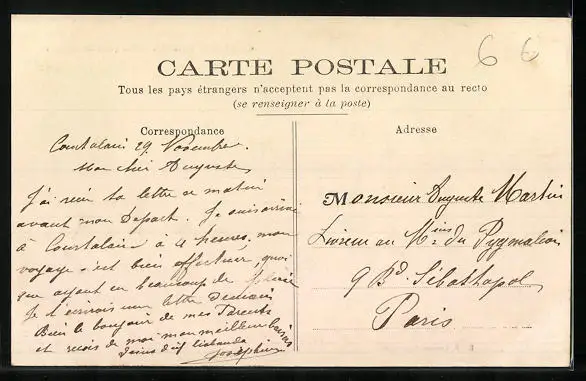 66
CARTE POSTALE
Tous les pays étrangers n'acceptent pas la correspondance au recto
(se renseigner à la poste)
Correspondance
Courtalain 29 Novembre.
Mon cher Auguste
J'ai reçu ta lettre ce matin
avant mon Départ. Je suis arrivé
à Courtalain à 4 heures, mon
voyage est bien effectuer, quoi
que ayant eu beaucoup de
Je t'écrirais une lettre Demain
Bien le bonjour de mes Parents
et reçois de moi mon meilleur baisers
Joséphine
Adresse
Monsieur Auguste Martin
Livreur au Mins du Pygmalion
9 Bd. Sébastopol
Paris